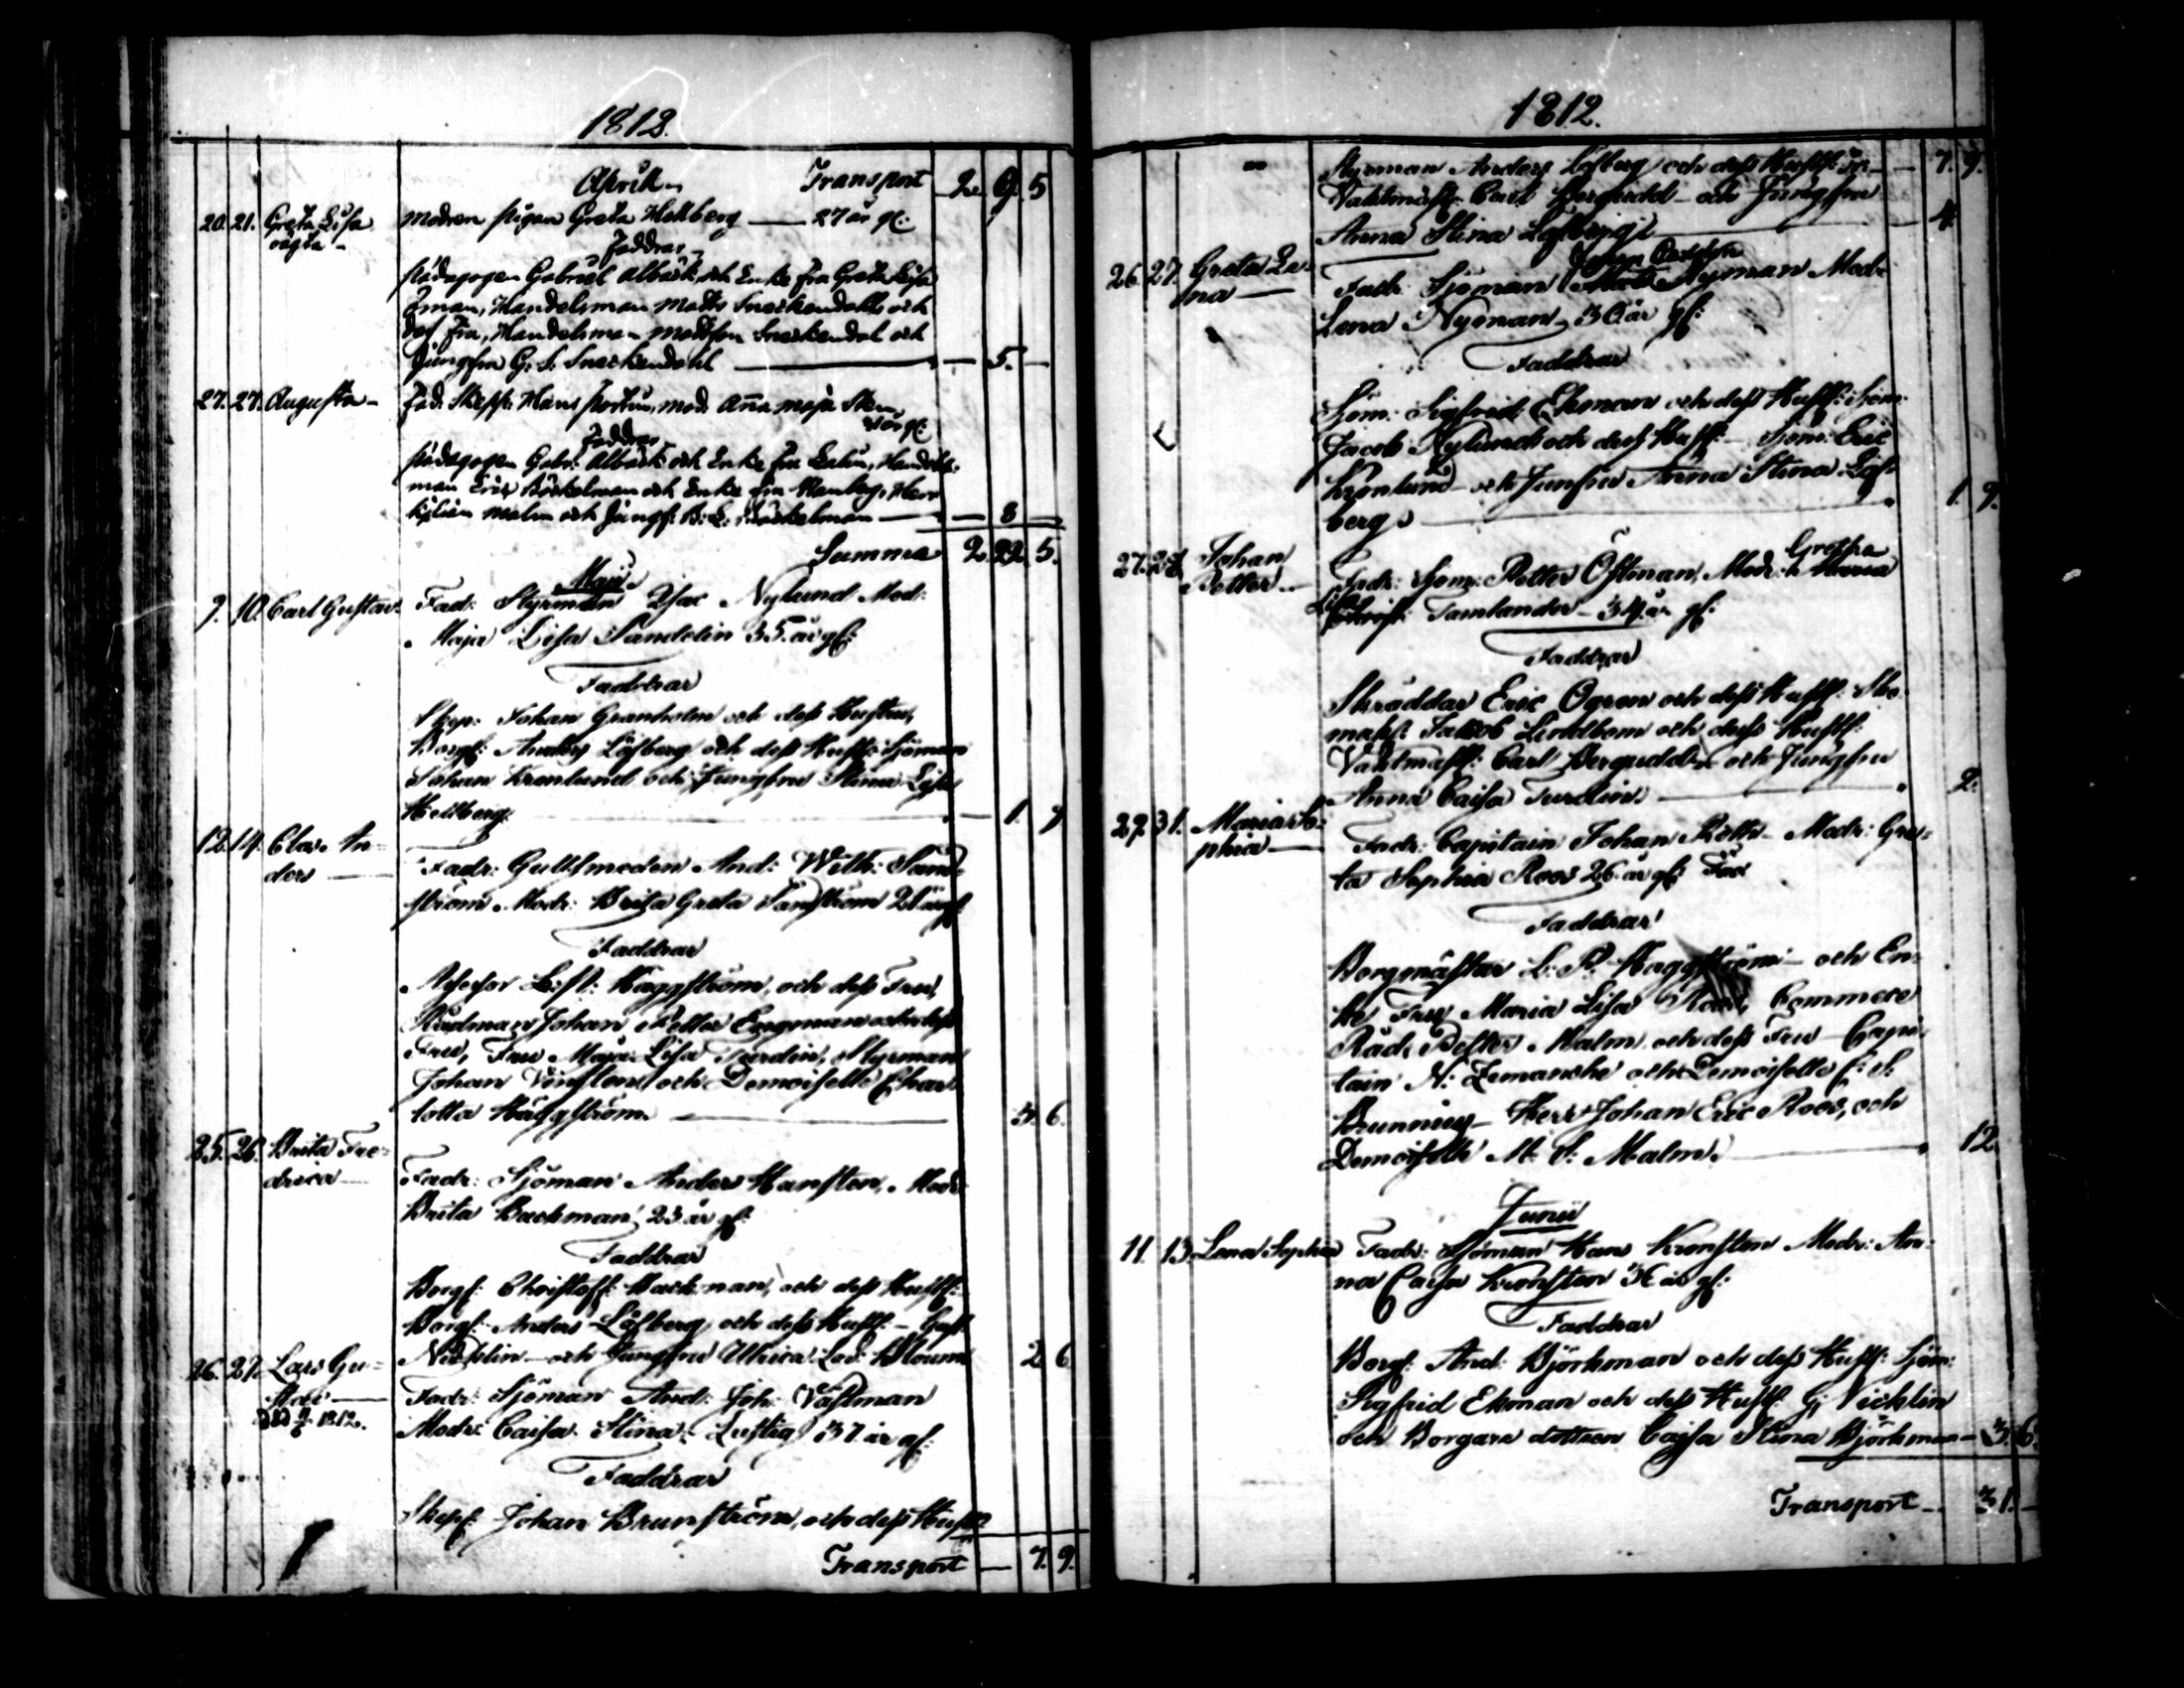 1812.
April. Transport 2. 9. 5
20. 21. Greta Lisa Modren pigan Greta Hellberg — 27 år gl:
oägta — Faddrar
Pädagogen Gabriel Albäck och Enke Fru Greta Lisa
Handelsman Matts Sneckendahl och
Fru, Handelsman Sneckendal och
Jungfru G. S. Sneckendahl — 5. —
27. 27. Augusta — Fad. Skepp. Hans mod. Anna Maja
år gl:
Faddrar
Pädagogen Gabr: Albäck och Enke Fru Handels-
man Eric Böckelman och Enke Fru Herr
Malm och Jungf: B: L: Böckelman — 8 —
Summa 2. 22. 5.
Maji
9. 10. Carl Gustav Fadr: Styrman Isac Nylund Modr:
Maja Lisa Sandelin 35. år gl:
Faddrar
Skep: Johan Granholm och dess Hustru,
Borg: Anders Löfberg och dess Hustr: Sjöman
Johan Kronlund och Jungfru Stina Lisa
Hellberg. — 1. 9
12. 14. Clas An- Fadr: Gullsmeden And: Wilh: Sand-
ders — ström Modr: Brita Greta Sandström år gl
Faddrar
Assessor L: P: Häggström, och dess Fru,
Rådman Johan Petter Engman och dess
Fru, Fru Maja Lisa Turdin, Styrman
Johan Vinsten och Demoiselle Char-
lotta Häggström — 3. 6.
25. 26. Brita Fre-
drica — Fadr: Sjöman Anders Hansten, Modr
Brita Backman 23 år gl:
Faddrar
Borg: Christoff: Backman, och dess Hustr:
Borg: Anders Löfberg och dess Hustr: — Gust
Nicklin — och Jungfru Ulrica Lov: Bloum 2 6
26. 27. Lars Gu- Fadr: Sjöman And: Joh: Västman
stav — Modr: Caisa Stina Lustig 37 år gl:
1812.
Faddrar
Skep: Johan Brunström, och dess Hustr
Transport — 7. 9.
1812.
Styrman Anders Löfberg och dess Hustr: — 7. 9.
Vaktmäst: Carl Bergudd — och Jungfru
Anna Stina Löfberg — 4
26. 27. Greta Le-
na — Fadr: Sjöman Nyman Modr
Lena Nyman 30 år gl:
Faddrar
Sjöm: Sigfrid Ekman och dess Hustr: Sjöm:
Jacob Nylund och dess Hustr: — Sjöm: Eric
Kronlund och Junfru Anna Stina Löf-
berg. — 1. 9.
27. 28. Johan Gretha
Petter — Fadr: Sjöm: Petter Östman, Modr:
Lisa Tamlander — 34 år gl:
Faddrar
Skräddar Eric Ögren och dess Hustr: Sko-
mak: Jakob Lindbom och dess Hustr:
Vaktmäst: Carl Bergudd — och Jungfru
Anna Caisa Turdin. — 2.
29. 31. Maria So-
phia — Fadr: Capitain Johan Modr: Gre-
ta Sophia Roos 26 år gl:
Faddrar
Borgmästar L: P: Häggström — och En-
ke Fru Maria Lisa Roos, Commerce
Råd: Petter Malm och dess Fru — Capi-
tain N: Zemanske och Demoiselle C: S:
Brunnius — Herr Johan Eric Roos, och
Demoiselle M: S: Malm. — 12
Junii
11. 13. Lena Sophia Fadr: Sjöman Hans Kronsten Modr: An-
na Caisa Kronsten år gl:
Faddrar
Borg: And: Björkman och dess Hustr: Sjöm:
Sigfrid Ekman och dess Hustr: G: Nicklin
och Borgare dottren Caisa Stina Björkman — 3. 6.
Transport — 31. —